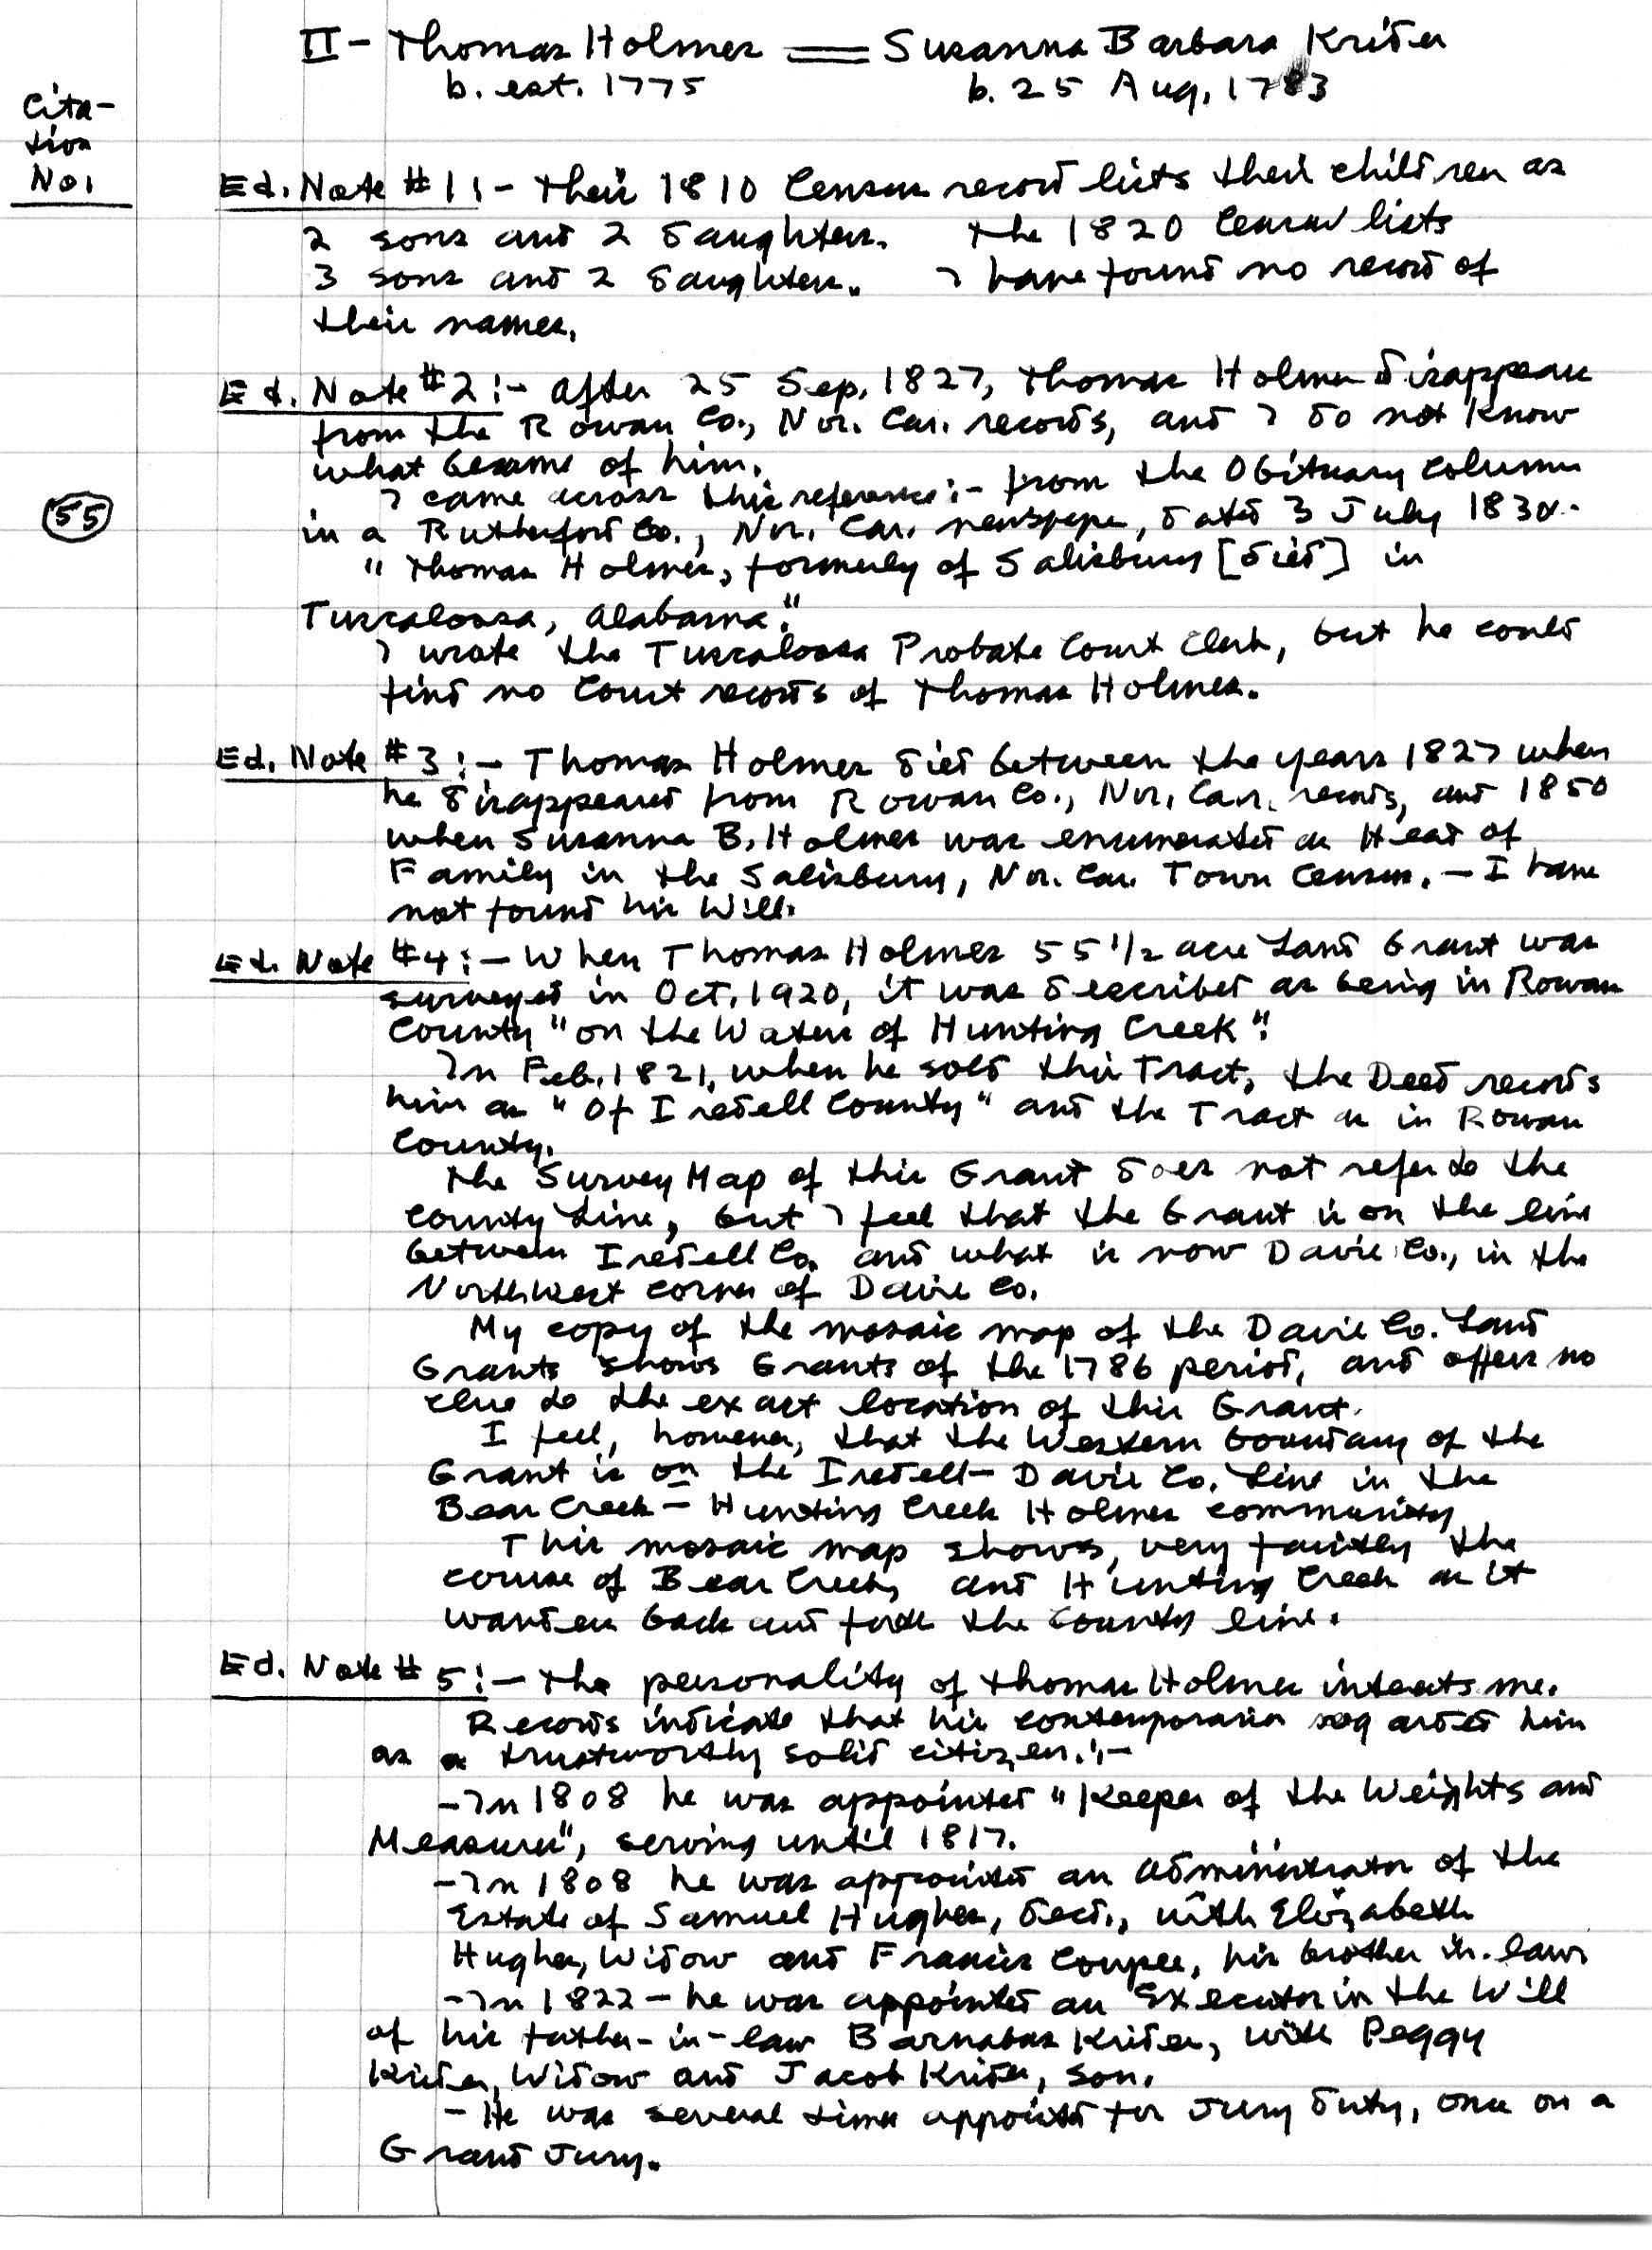 II - Thomas Holmes = Susanna Barbara Krider
b. est. 1775 b. 25 Aug, 1783
Cita-
tion
No.
Ed. Note #1:- Their 1810 Census record lists their children as
2 sons and 2 daughters. The 1820 Census lists
3 sons and 2 daughters. I have found no record of
their names.
Ed. Note #2:- After 25 Sep, 1827, Thomas Holmes disappears
from the Rowan Co., Nor. Car. records, and I do not know
what became of him.
I came across this reference:- from the Obituary column
55
in a Rutherford Co., Nor. Car. newspaper, dated 3 July
"Thomas Holmes, formerly of Salisbury [died] in
Tuscaloosa, Alabama."
I wrote the Tuscaloosa Probate Court Clerk, but he could
find no Court records of Thomas Holmes.
Ed. Note #3:- Thomas Holmes died between the years 1827 when
he disappeared from Rowan Co., Nor. Car. records, and 1850
when Susanna B. Holmes was enumerated as Head of
Family in the Salisbury, Nor. Car. Town Census. - I have
not found his Will.
Ed. Note #4:- When Thomas Holmes 55 1/2 acre Land Grant was
surveyed in Oct. 1920, it was described as being in Rowan
County "on the Waters of Hunting Creek".
In Feb. 1821, when he sold this Tract, the Deed records
him as "Of Iredell County" and the Tract as in Rowan
County.
The Survey Map of this Grant does not refer to the
County Line, but I feel that the Grant is on the line
between Iredell Co. and what is now Davie Co., in the
Northwest corner of Davie Co.
My copy of the mosaic map of the Davie Co. Land
Grants shows Grants of the 1786 period, and offers no
clue to the exact location of this Grant.
I feel, however, that the Western boundary of the
Grant is on the Iredell - Davie Co. Line in the
Bear Creek - Hunting Creek Holmes community
This mosaic map shows, very faintly the
course of Bear Creek, and Hunting Creek as it
wanders back and forth the County line.
Ed. Note #5:- The personality of Thomas Holmes interests me.
Records indicate that his contemporaries regarded him
as a trustworthy solid citizen.:-
- In 1808 he was appointed "Keeper of the Weights and
Measures", serving until 1817.
- In 1808 he was appointed an Administrator of the
Estate of Samuel Hughes, decd., with Elizabeth
Hughes, Widow and Francis Coupee, his brother-in-law
- In 1822 - he was appointed an Executor in the Will
of his father-in-law Barnabas Krider, with Peggy
Krider, Widow and Jacob Krider, son.
- He was several times appointed for Jury duty, once on a
Grand Jury.